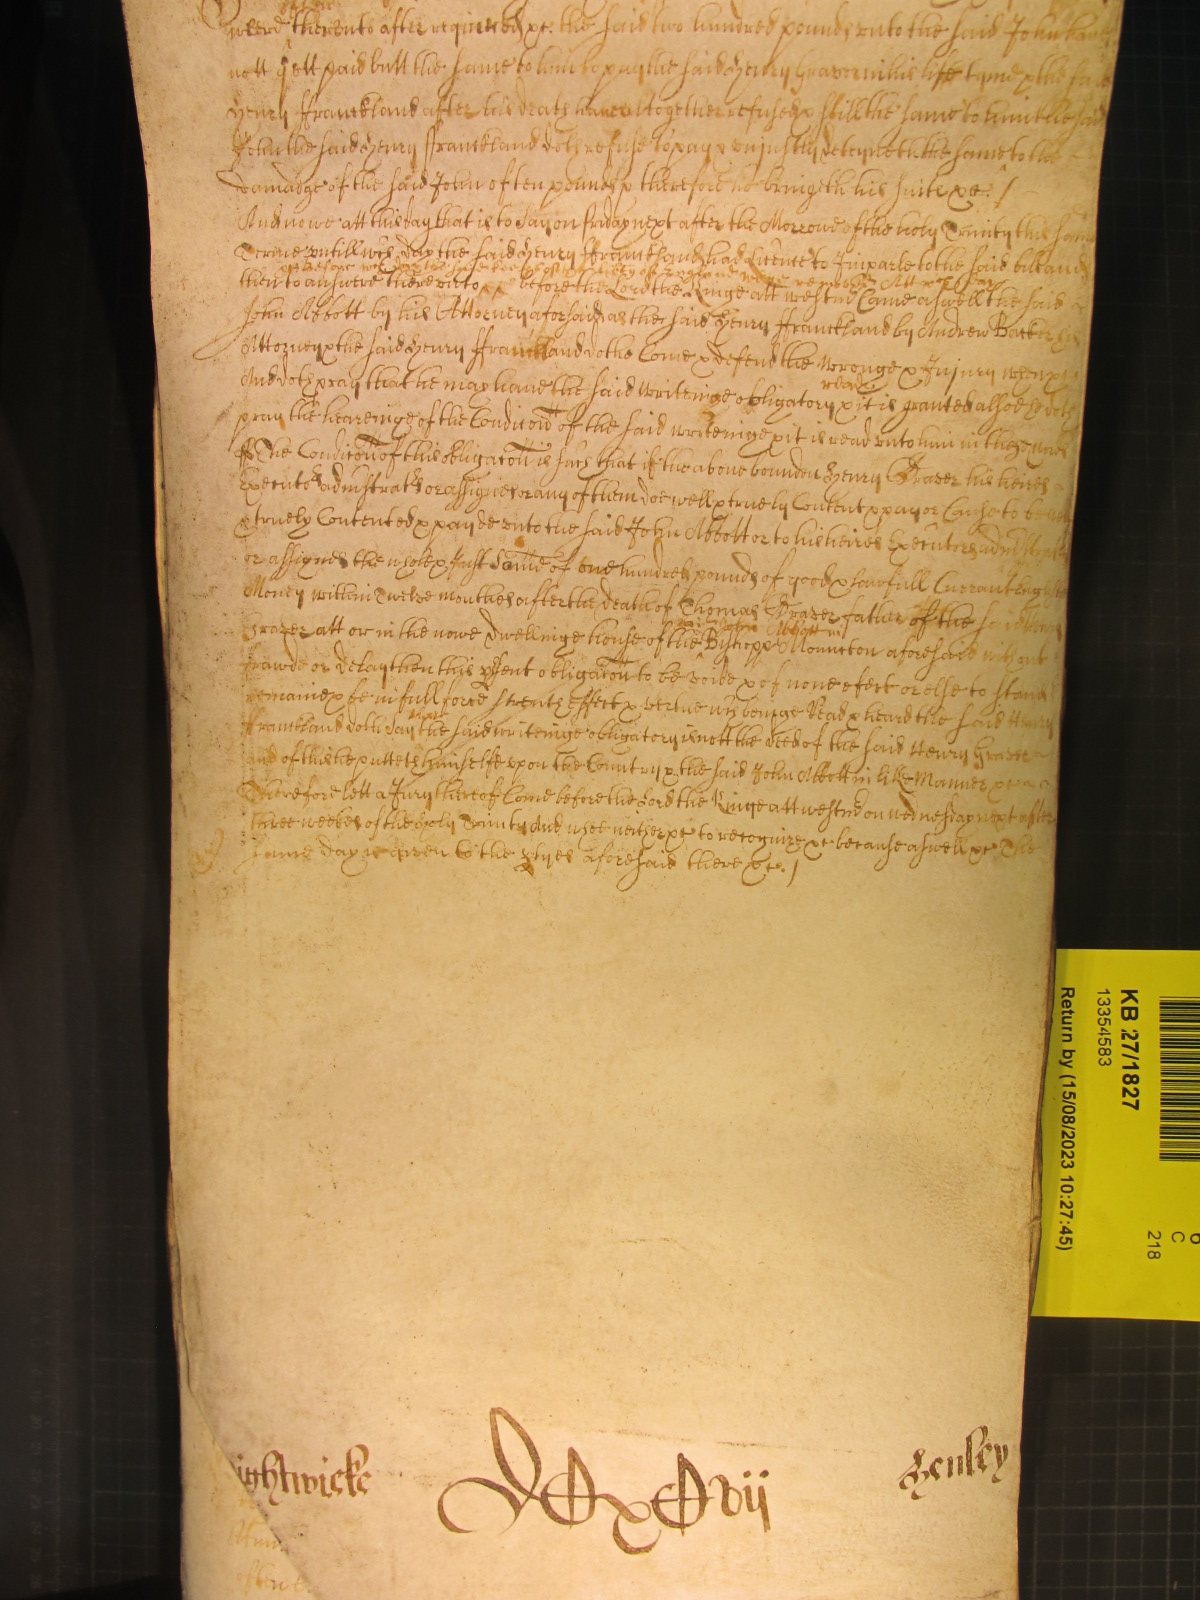 thereunto after required &c. the said two hundred pounds unto the said John hath
nott yett paid butt the same to him to pay the said Henry Graver in his life tyme & the said
Henry ffranckland after his death have altogether refused & still the same to him the said
John the said Henry ffranckland doth refuse to pay & unjustly deteyneth the same to the
damadge of the said John of ten pounds & therefore he bringeth his suite &c.
And nowe att this day that is to say on friday next after the Morrowe of the holy Trinity this same
Terme untill wch day the said Henry ffranckland had Licence to Imparle to the said bill and
then to answere thereunto &c before the Lord the Kinge att Westm Came aswell the said
John Abbott by his Attorney aforesaid as the said Henry ffranckland by Andrew Barker his
Attorney & the said Henry ffranckland doth Come & defend the wronge & Injury when &c
And doth pray that he may have the said writeinge obligatory & it is granted alsoe he doth
read
pray the heareinge of the Condicion of the said writeinge & it is read unto him in these words
The Condicion of this obligacion is such that if the above bounden Henry Graver his heires
Executors administrators or assignes or any of them doe well & truely Content & pay or Cause to be well
& truely Contented & payde unto the said John Abbott or to his heires Executors
or assignes the whole & Just Summe of one hundred pounds of good & lawfull Currant English
Money within Twelve monthes after the death of Thomas Graver father of the said Henry
said John Abbott in
Graver att or in the nowe dwellinge house of the Bishopp Mounckton aforesaid without
frawde or delay then this psent obligacion to be voide & of none efect or else to stand
remaine & be in full force strenth Effect & vertue wch beinge Read & heard the said Henry
ffranckland doth say that the said writeinge obligatory is nott the deed of the said Henry Graver
and of this he putteth himselfe upon the Countrey & the said John Abbott in like Manner &c
Therefore lett a Jury thereof Come before the Lord the Kinge att Westm on wednesday next after
three weekes of the Holy Trinity And whoe neither &c to recognize &c because aswell &c The
same day is given to the ptyes aforesaid there &c.
ightwicke
Henley
KB 27/1827
13354583
Return by (15/08/2023 10:27:45)
C
218